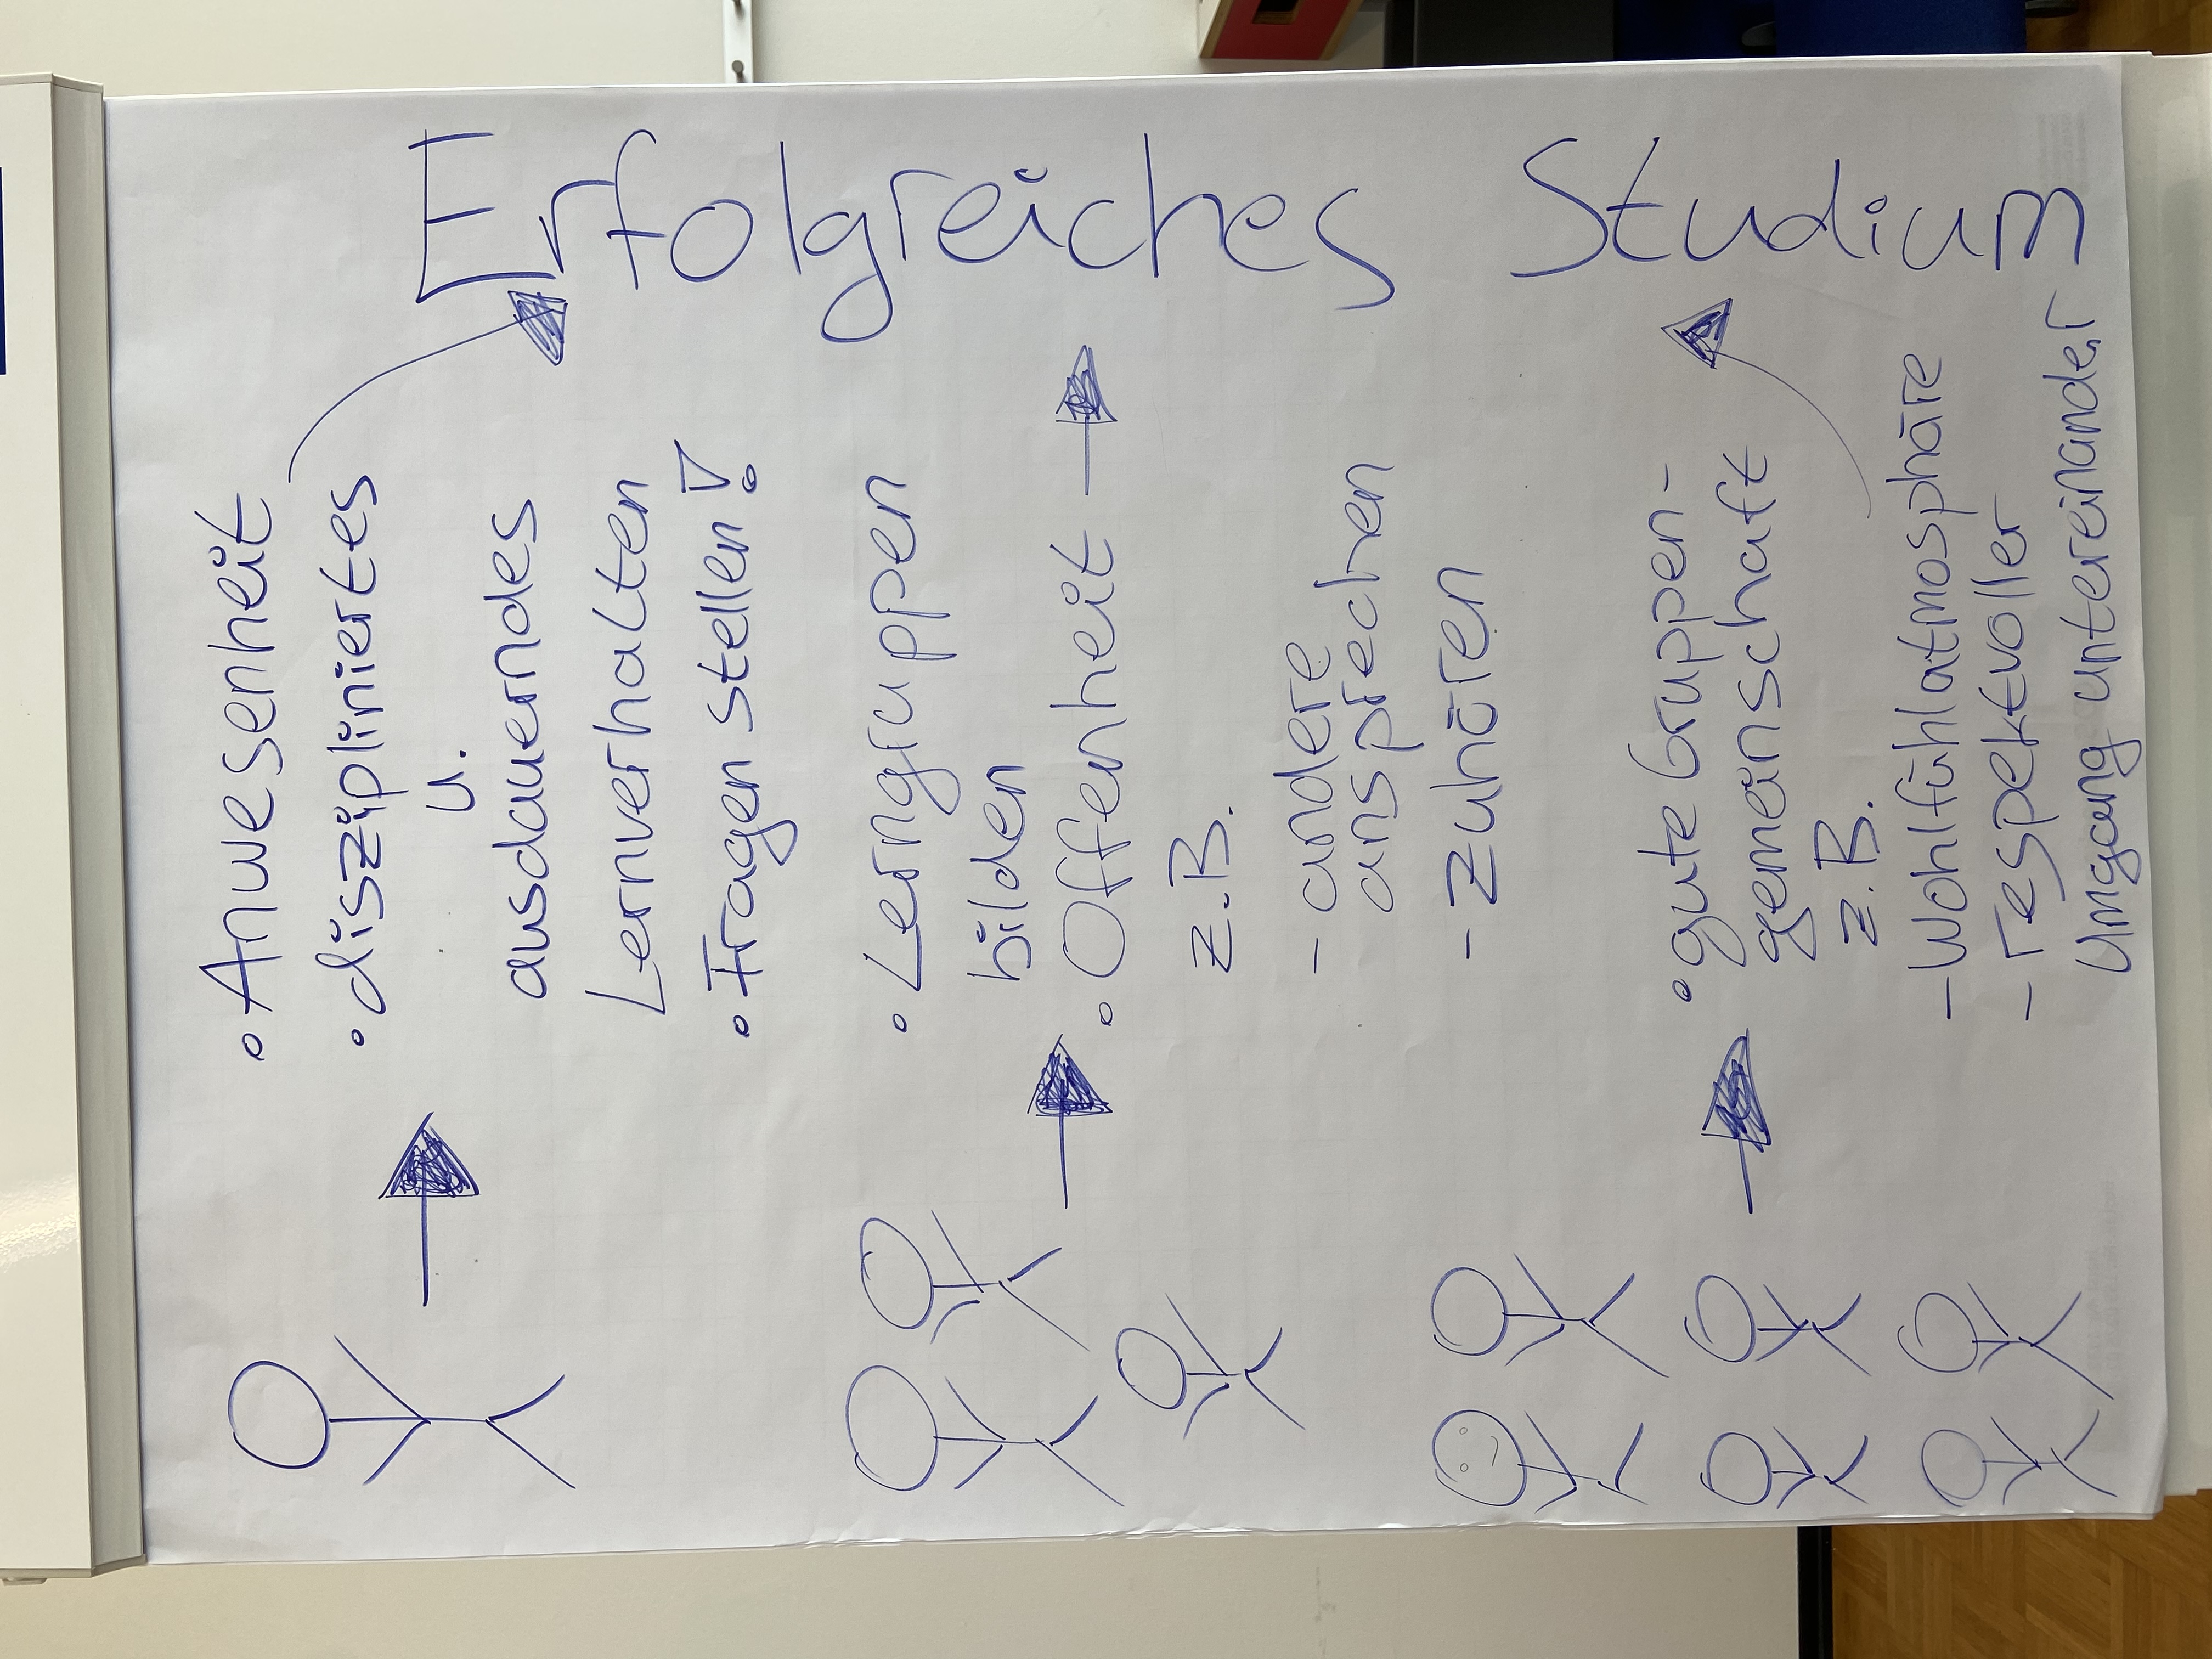 Erfolgreiches Studium
• Anwesenheit
• diszipliniertes
u.
ausdauerndes
Lernverhalten
• Fragen stellen!
• Lerngruppen
bilden
• Offenheit
z.B.
- andere
ansprechen
- zuhören
• gute Gruppen-
gemeinschaft
z.B.
- Wohlfühlatmosphäre
- respektvoller
Umgang untereinander